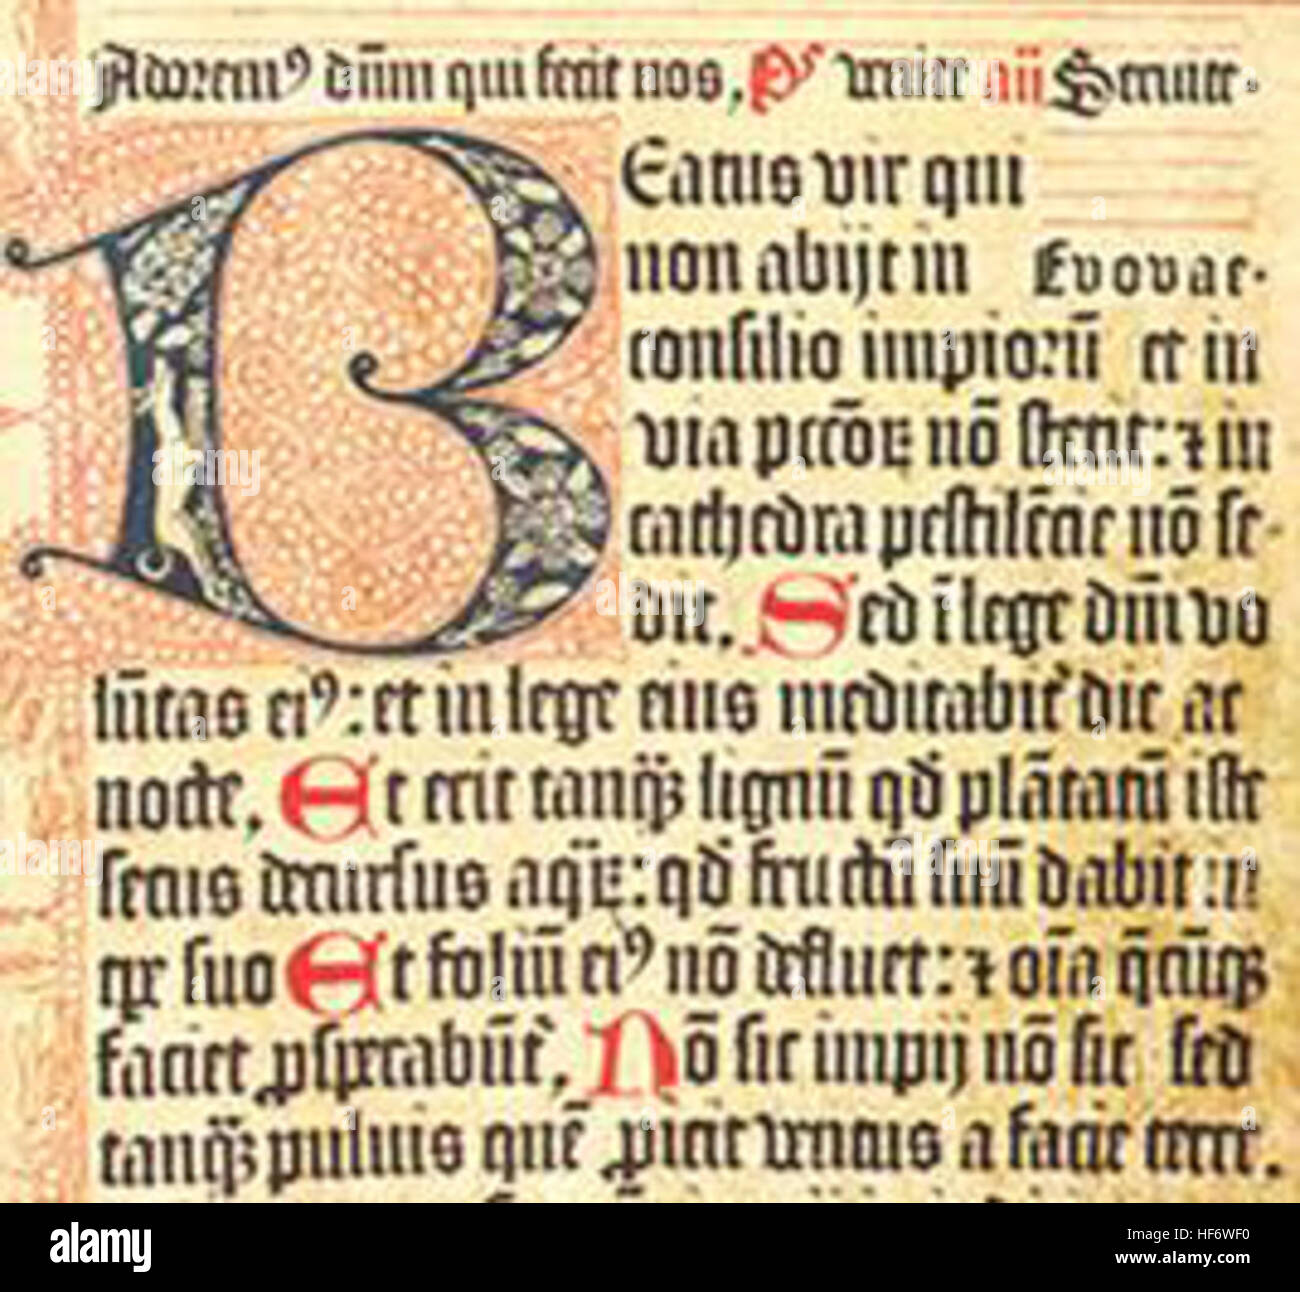 Adorem⁹ dn̄m qui fecit nos, Ps Venite añ Seruite.
BEatus vir qui
non abijt in Evovae.
consilio impiorū et in
via pcc̄oꝝ nō stetit: ⁊ in
cathedra pestilēcie nō se-
dit. Sed ī lege dn̄i vo
lūtas ei⁹: et in lege eius meditabit᷑ die ac
nocte, Et erit tanq̄ꝫ lignū qḋ plātatū iste
secus decursus aq̄ꝝ: qḋ fructū suū dabit in
tꝑe suo Et foliū ei⁹ nō defluet: ⁊ oīa q̄cūqꝫ
faciet ꝓsperabūt᷑, Nō sic impij nō sic sed
tanq̄ꝫ puluis quē ꝓicit ventus a facie terre.
alamy stock photo
HF6WF0
www.alamy.com